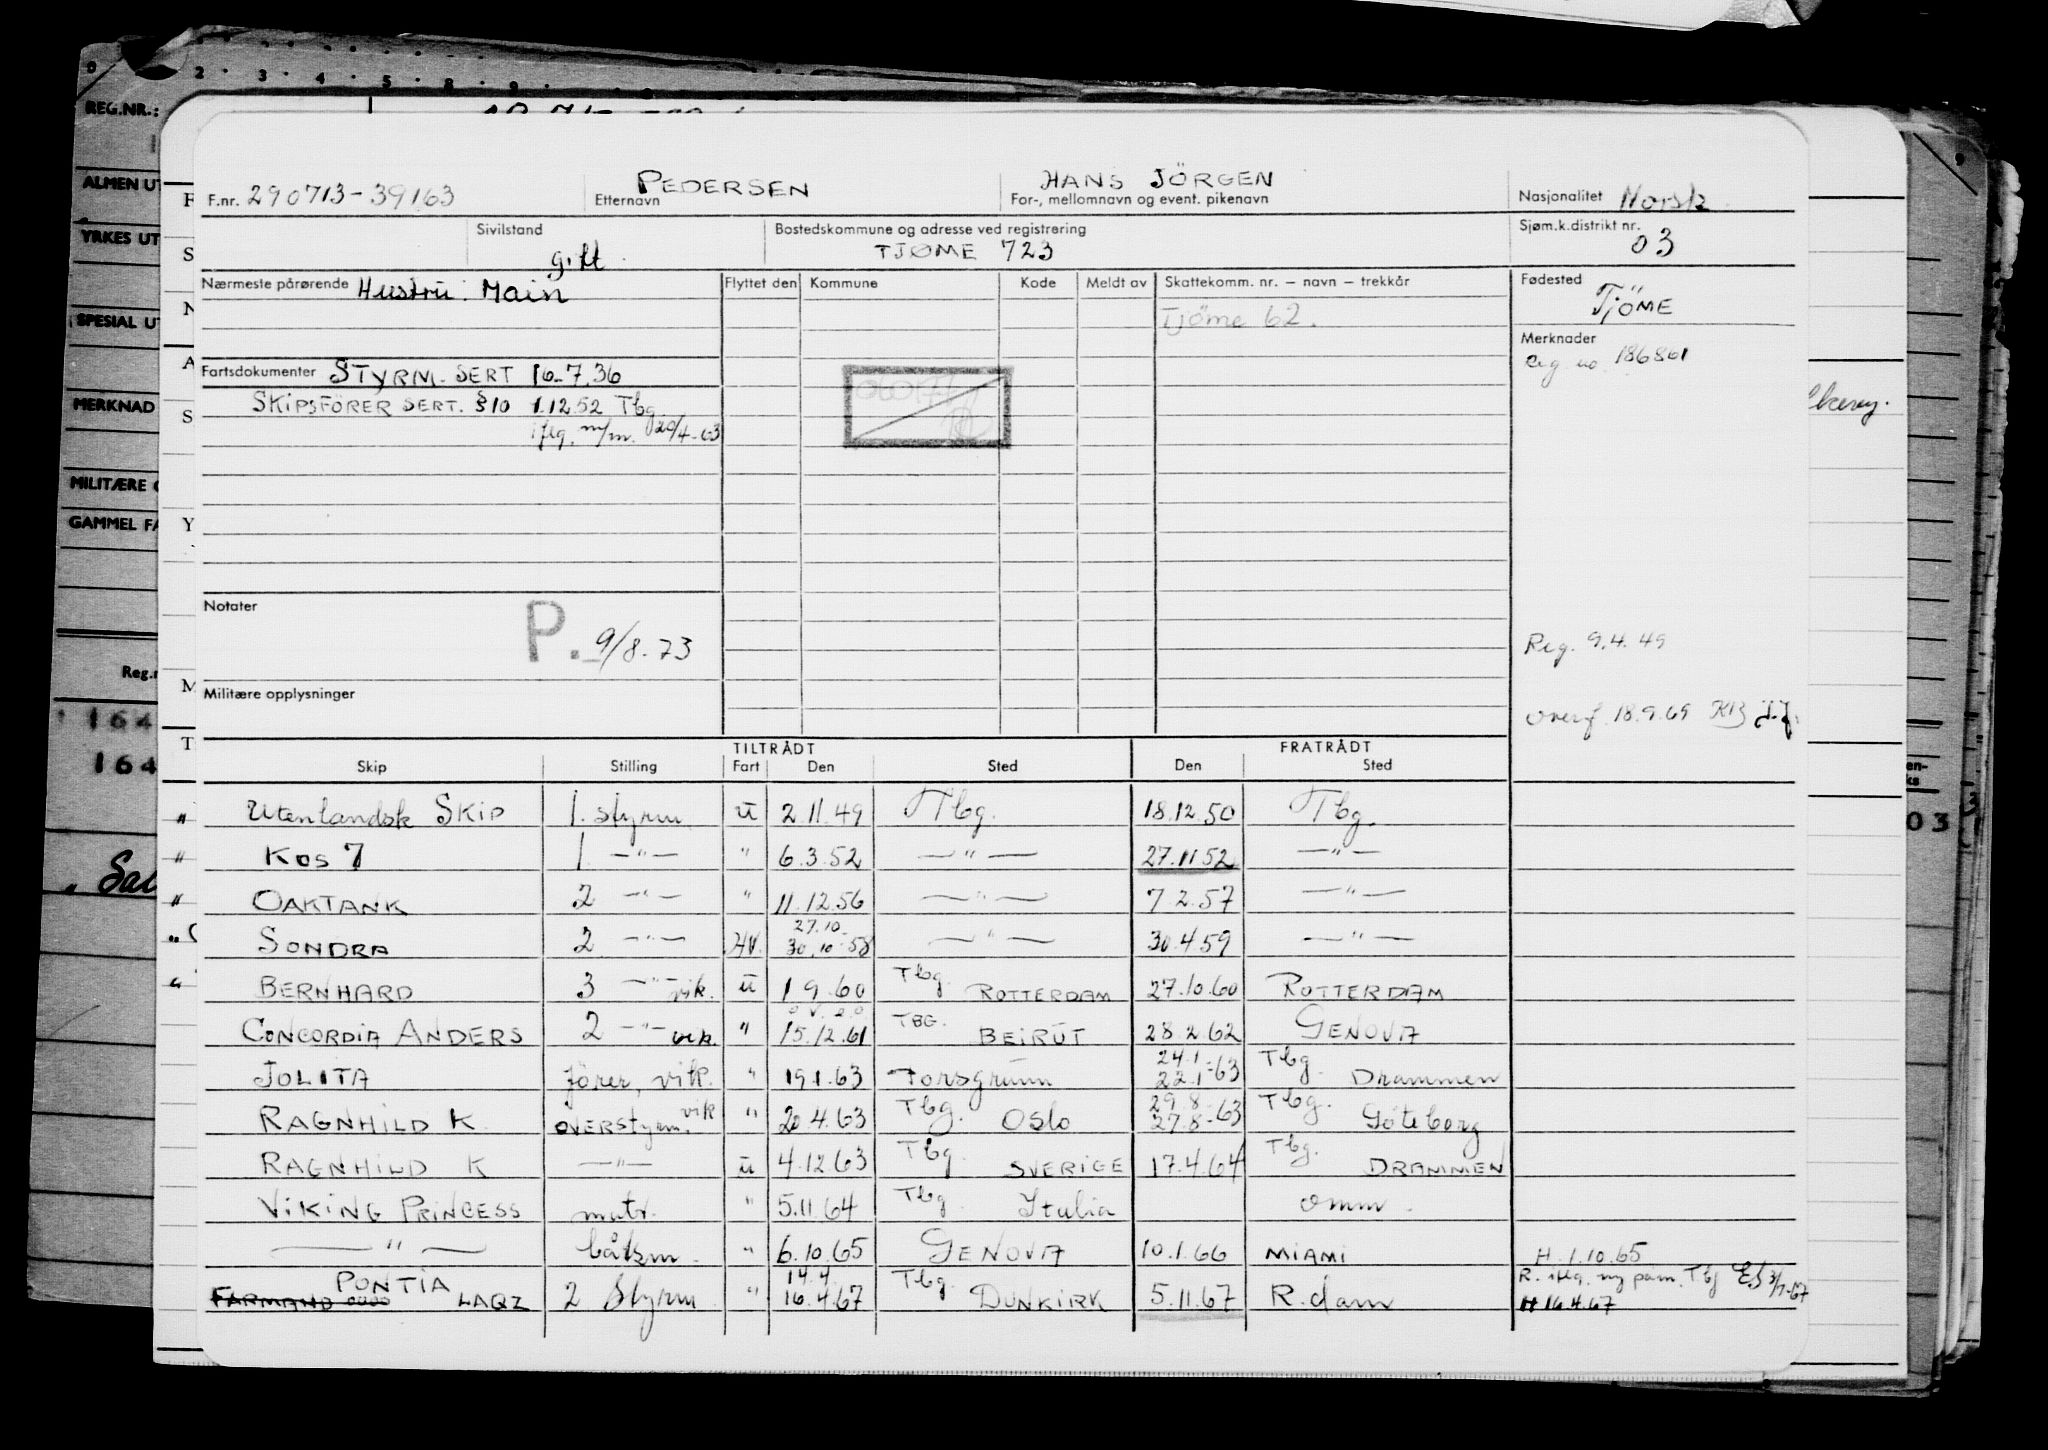 F.nr. 290713-39163 PEDERSEN Etternavn HANS JÖRGEN For-, mellomnavn og event. pikenavn Nasjonalitet Norsk
Sivilstand gift Bostedskommune og adresse ved registrering TJØME 723 Sjøm.k.distrikt nr. 03
Nærmeste pårørende Hustru: Main Flyttet den Kommune Kode Meldt av Skattekomm. nr. – navn – trekkår Fødested TJÖME
Tjöme 62.
Merknader
Reg no 186861
Fartsdokumenter STYRM. SERT 16-7.36
SKIPSFÖRER SERT. §10 1.12.52 Tbg
iflg. m/m. 20/4-63
Notater P. 9/8-73
Reg. 9.4.49
Militære opplysninger
overf 18.9.69
TILTRÅDT FRATRÅDT
Skip Stilling Fart Den Sted Den Sted
Utenlandsk SKIP 1. styrm u 2.11.49 Tbg. 18.12.50 Tbg.
KOS 7 1. —"— " 6.3.52 —"— 27.11 52 —"—
OAKTANK 2 —"— " 11.12.56 —"— 7.2.57 —"—
27.10
SONDRA 2 —"— HV. 30.10-58 —"— 30.4.59 —"—
BERNHARD 3 —"— vik. u 1 9.60 Tbg. ROTTERDAM 27.10.60 ROTTERDAM
CONCORDIA ANDERS 2 —"— vik. " 15.12.61 TBG. BEIRUT 28.2.62 GENOVA
24.1
JOLITA förer, vik. " 19.1.63 Porsgrunn 22.1-63 Tbg. Drammen
29.8
RAGNHILD K OVERstyrm. vik " 20.4.63 Tbg. Oslo 27.8-63 Tbg. Göteborg
RAGNHILD K —"— u 4.12.63 Tbg. SVERIGE 17.4.64 Tbg. DRAMMEN
VIKING PRINCESS matr. " 5.11.64 Tbg. Italia omm.
—"— båtsm. " 6.10.65 GENOVA 10.1.66 MIAMI H.1.10.65
PONTIA 14.4
FARMAND LAQZ 2 Styrm " 16.4.67 Tbg. DUNKIRK 5.11.67 R.dam H 16.4.67
REG.NR.:
ALMEN UT
YRKES UT
SPESIAL UT
MERKNAD
MILITÆRE
GAMMEL FA
164
164
03